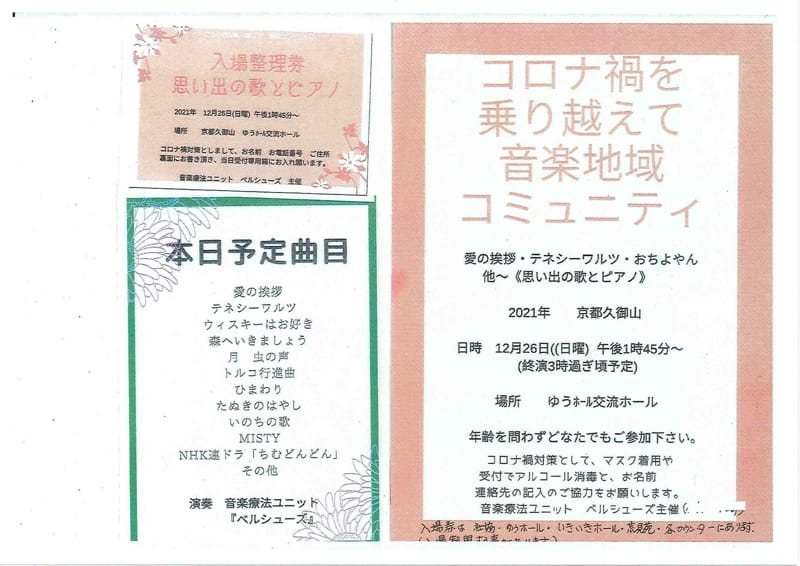 入場整理券
思い出の歌とピアノ
2021年 12月26日(日曜) 午後1時45分～
場所 京都久御山 ゆうホール交流ホール
コロナ禍対策としまして、お名前 お電話番号 ご住所
裏面にお書き頂き、当日受付専用箱にお入れ願います。
音楽療法ユニット ベルシューズ 主催
本日予定曲目
愛の挨拶
テネシーワルツ
ウィスキーはお好き
森へいきましょう
月 虫の声
トルコ行進曲
ひまわり
たぬきのはやし
いのちの歌
MISTY
NHK連ドラ「ちむどんどん」
その他
演奏 音楽療法ユニット
『ベルシューズ』
コロナ禍を
乗り越えて
音楽地域
コミュニティ
愛の挨拶・テネシーワルツ・おちよやん
他～《思い出の歌とピアノ》
2021年 京都久御山
日時 12月26日((日曜) 午後1時45分～
(終演3時過ぎ頃予定)
場所 ゆうホール交流ホール
年齢を問わずどなたでもご参加下さい。
コロナ禍対策として、マスク着用や
受付でアルコール消毒と、お名前
連絡先の記入のご協力をお願いします。
音楽療法ユニット ベルシューズ主催
入場券は 社協・ゆうホール・いきいきホール・荒見苑・各カウンターにあります.